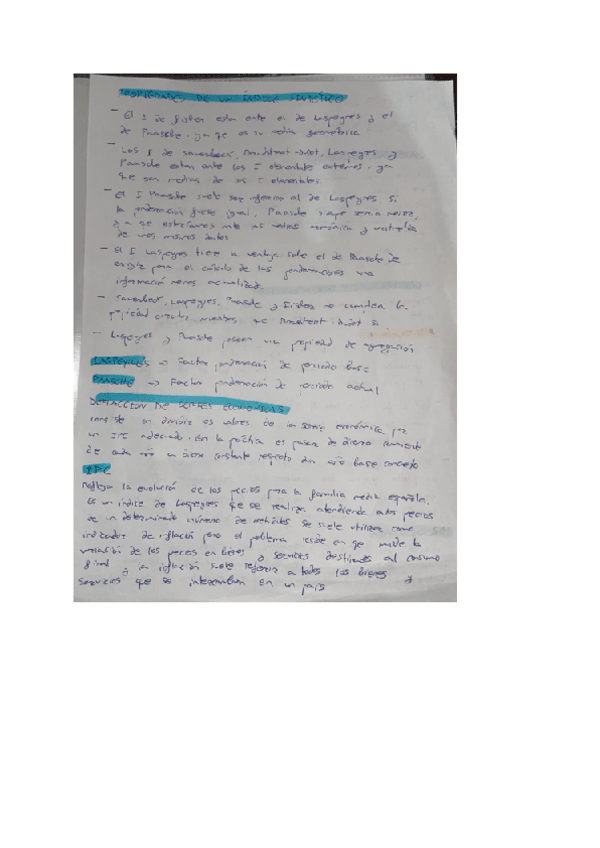 PROPIEDADES DE UN ÍNDICE SINTÉTICO
- El I de Fisher esta entre el de Laspeyres y el
de Paasche, ya que es su media geométrica
- Los I de Sauerbeck, Bradstreet-Dutot, Laspeyres y
Paasche estan entre los I elementales extremos, ya
que son medias de los I elementales.
- El I Paasche suele ser inferior al de Laspeyres. Si
la ponderación fuese igual, Paasche siempre seria menor,
ya que estariamos ante media armónica y
de unos mismos datos
- El I Laspeyres tiene la ventaja sobre el de Paasche de
exigir para el cálculo de las ponderaciones una
información menos actualizada.
- Sauerbeck, Laspeyres, Paasche y Fisher no cumplen la
propiedad circular, mientras que Bradstreet-Dutot si
- Laspeyres y Paasche poseen una propiedad de agregación
LASPEYRES → Factor ponderación de periodo base
PAASCHE → Factor ponderación de periodo actual
DEFLACCION DE SERIES ECONOMICAS
consiste en dividir los valores de la serie económica por
un IPC adecuado. con la práctica es pasar de dinero corriente
de cada año a dinero constante respecto a un año base concreto
IPC
Refleja la evolución de los precios para la familia media española.
Es un índice de Laspeyres que se realiza atendiendo a los precios
de un determinado número de artículos. Se suele utilizar como
indicador de inflación pero el problema reside en que mide la
variación de los precios en bienes y servicios destinados al consumo
final y la inflación suele referirse a todos los bienes y
servicios que se intercambian en un pais